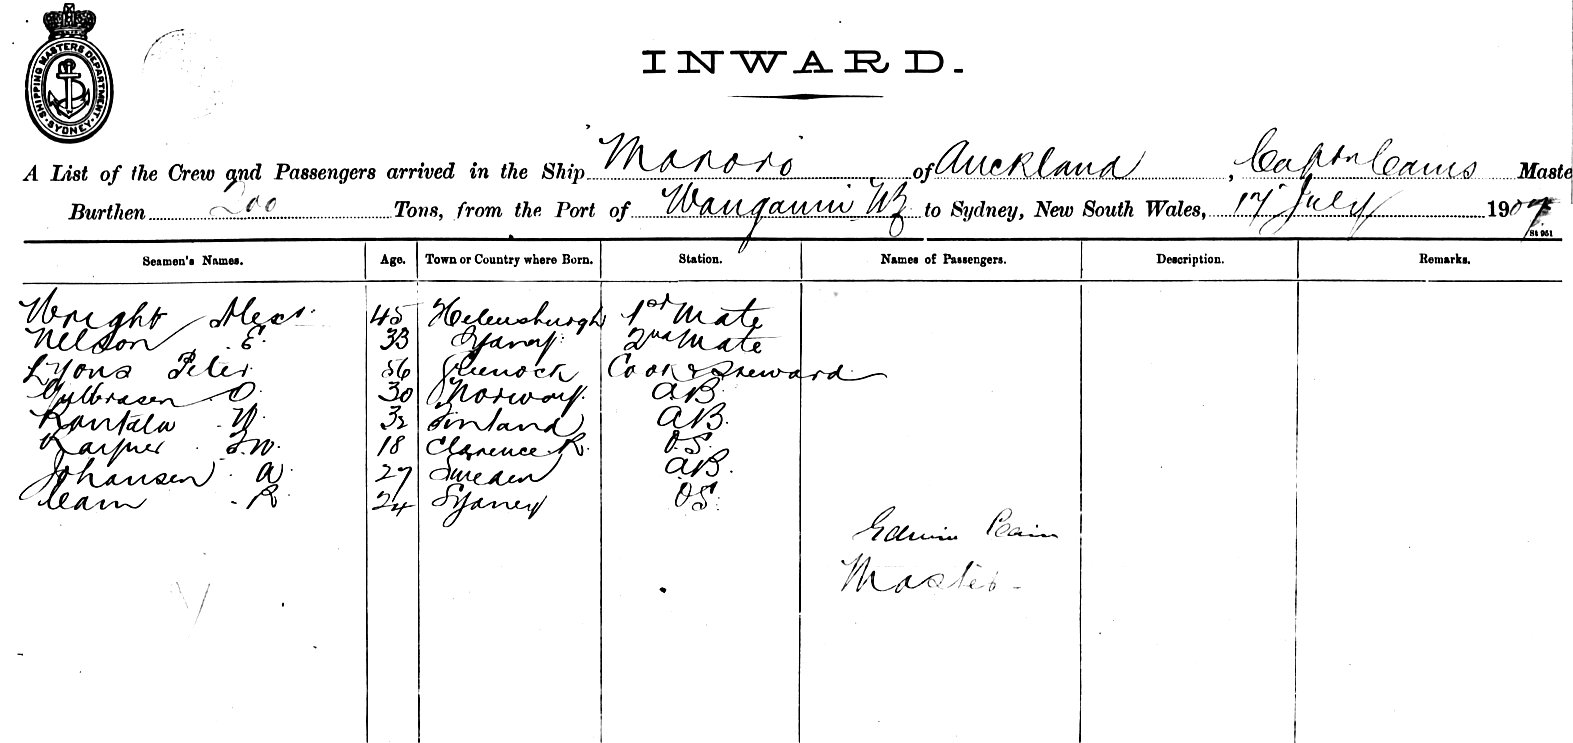 SHIPPING MASTERS DEPARTMENT
SYDNEY
INWARD.
A List of the Crew and Passengers arrived in the Ship Manoro of Auckland, Captn Cains Maste
Burthen 200 Tons, from the Port of Wanganui NZ to Sydney, New South Wales, 17 July 1907
St 951
Seamen's Names. Age. Town or Country where Born. Station. Names of Passengers. Description. Remarks.
Wright Alexr. 45 Helensburgh 1st Mate
Nelson E. 33 Sydney 2nd Mate
Lyons Peter 56 Greenock Cook & Steward
Gulbrasen O. 30 Norway AB.
Rantala W. 32 Finland AB.
F.W. 18 Clarence R. O.S.
Johansen A. 27 Sweden AB.
Cain R 24 Sydney OS.
Edwin Cain
Master